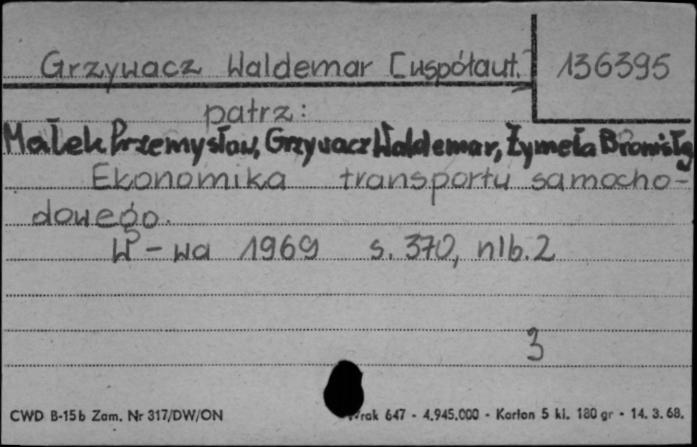 Grzywacz Waldemar [współaut.] 136395
patrz:
Małek Przemysław, Grzywacz Waldemar, Żymeła Bronisła
Ekonomika transportu samocho-
dowego.
W-wa 1969 s. 370, nlb. 2
3
CWD B-15b Zam. Nr 317/DW/ON rak 647 - 4.945.000 - Karton 5 kl. 180 gr - 14. 3. 68.